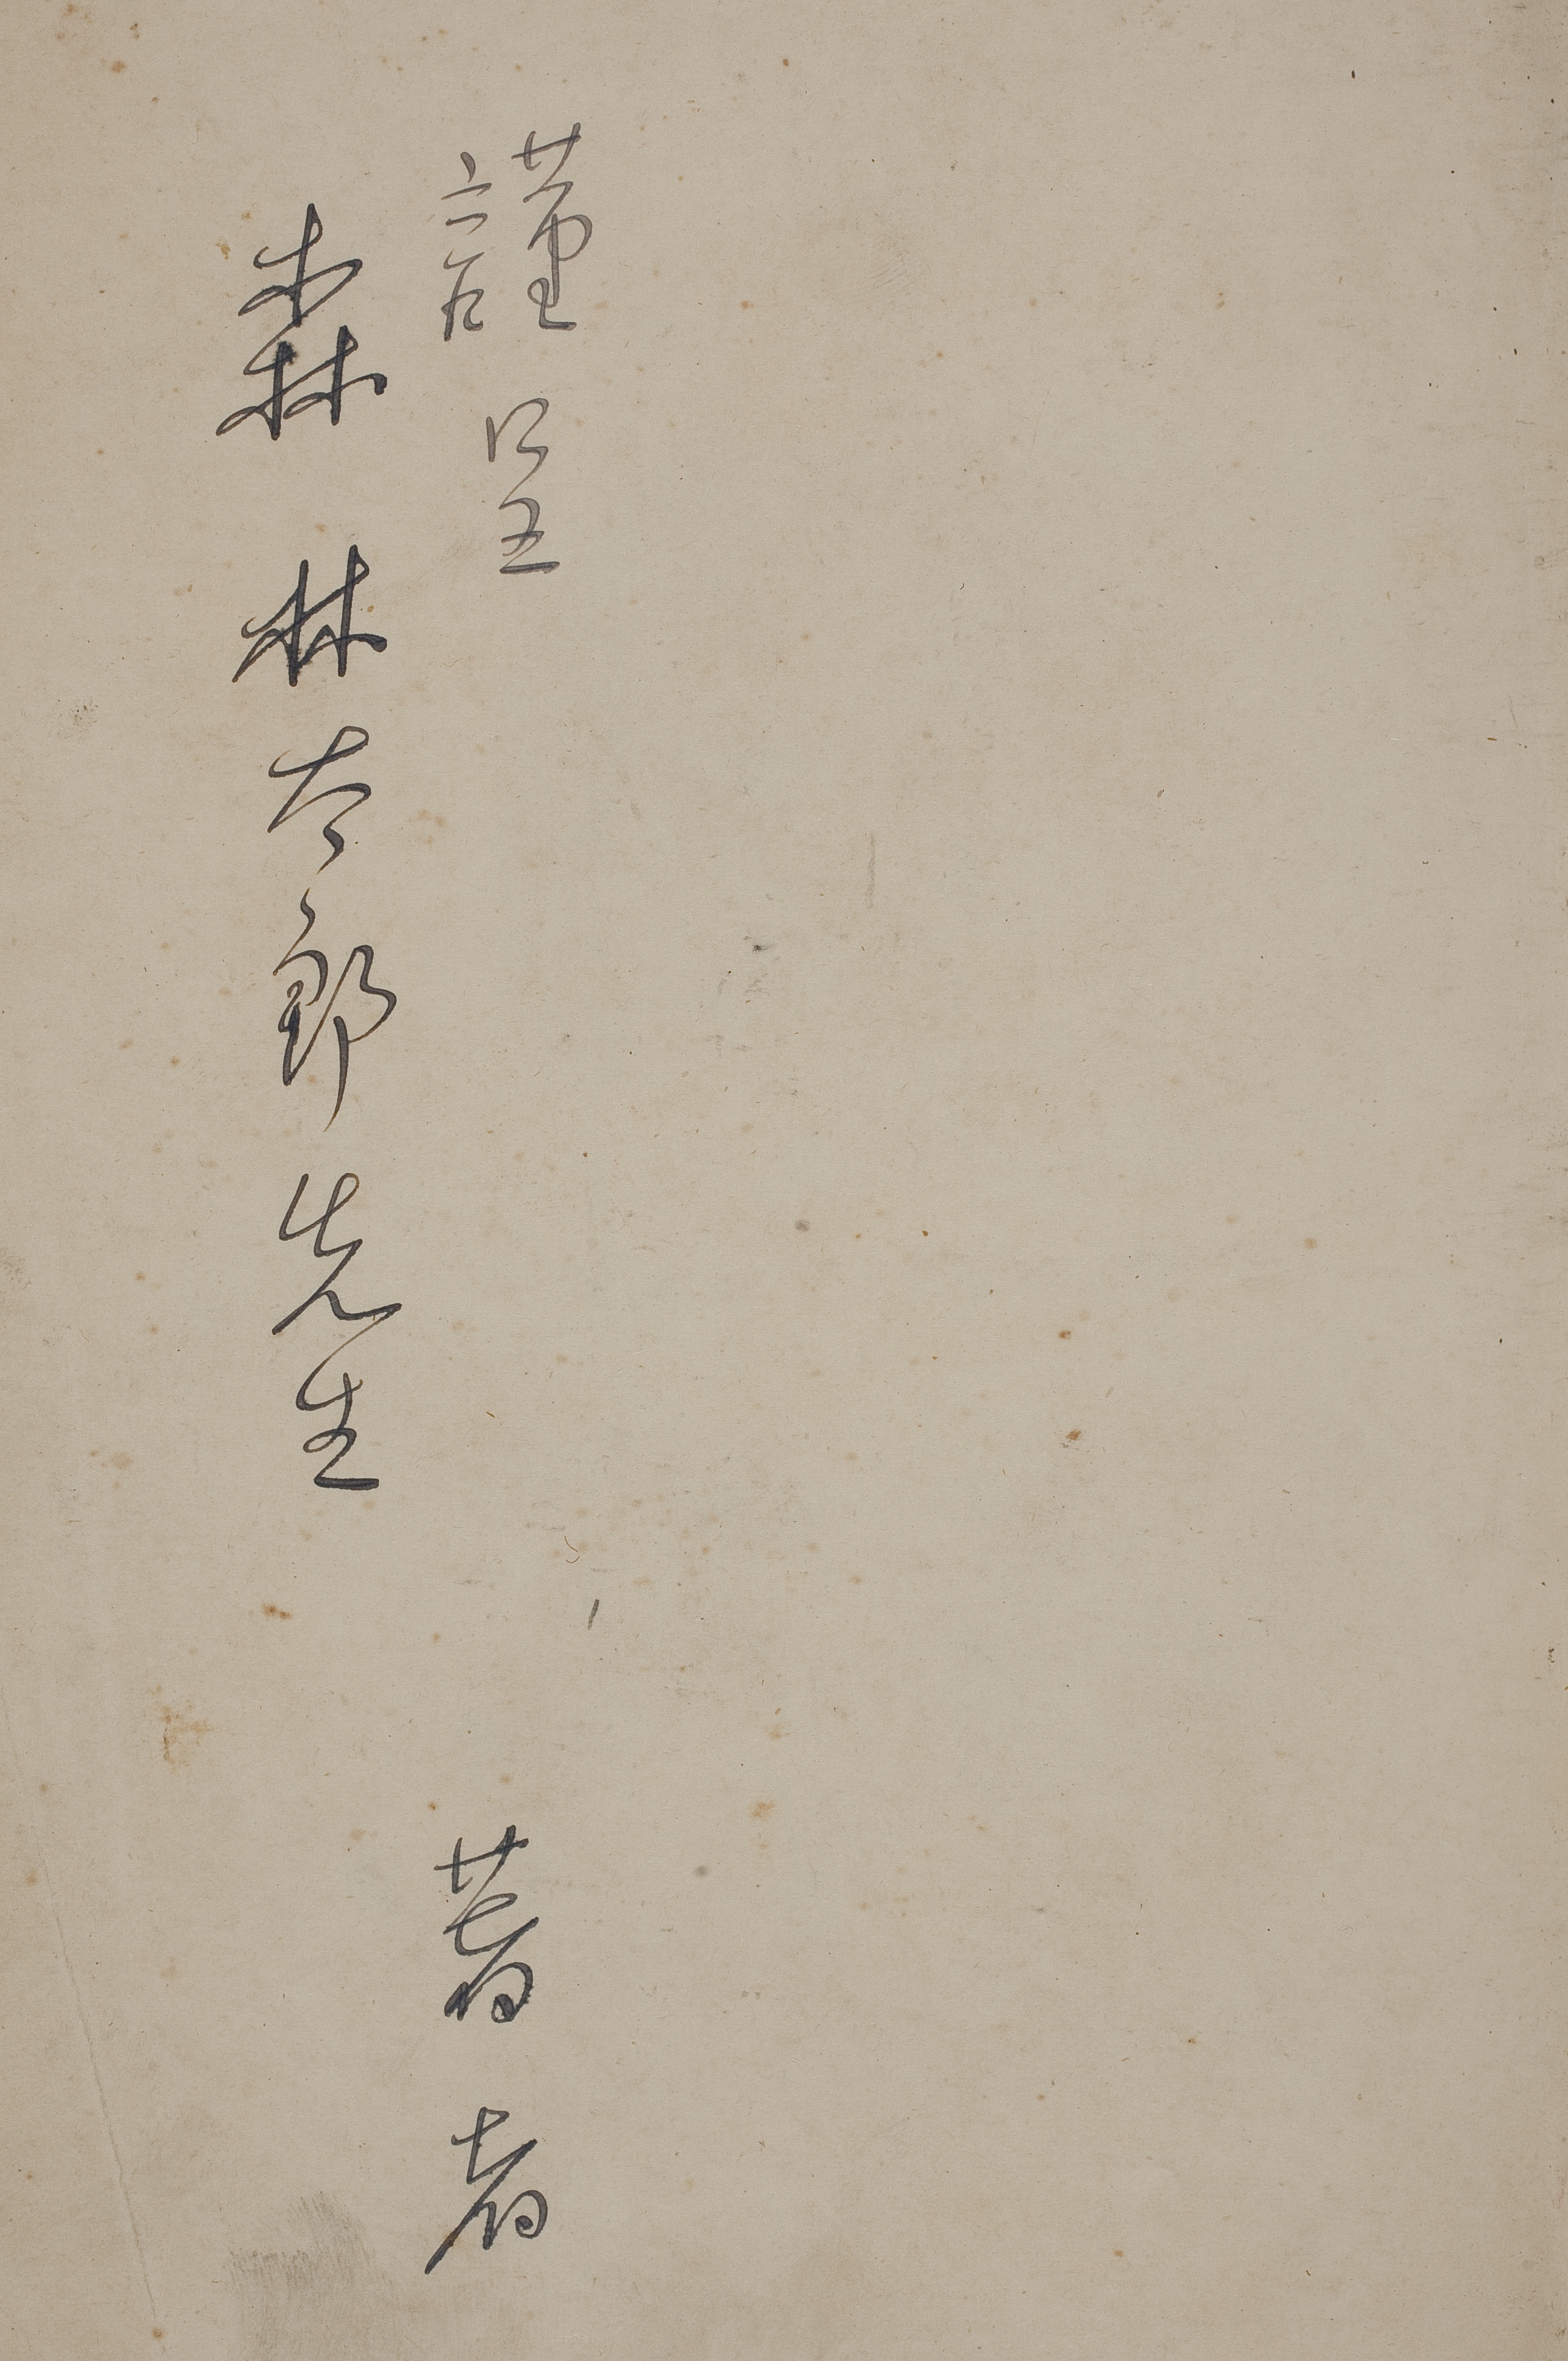 謹呈
著者
森林太郎先生